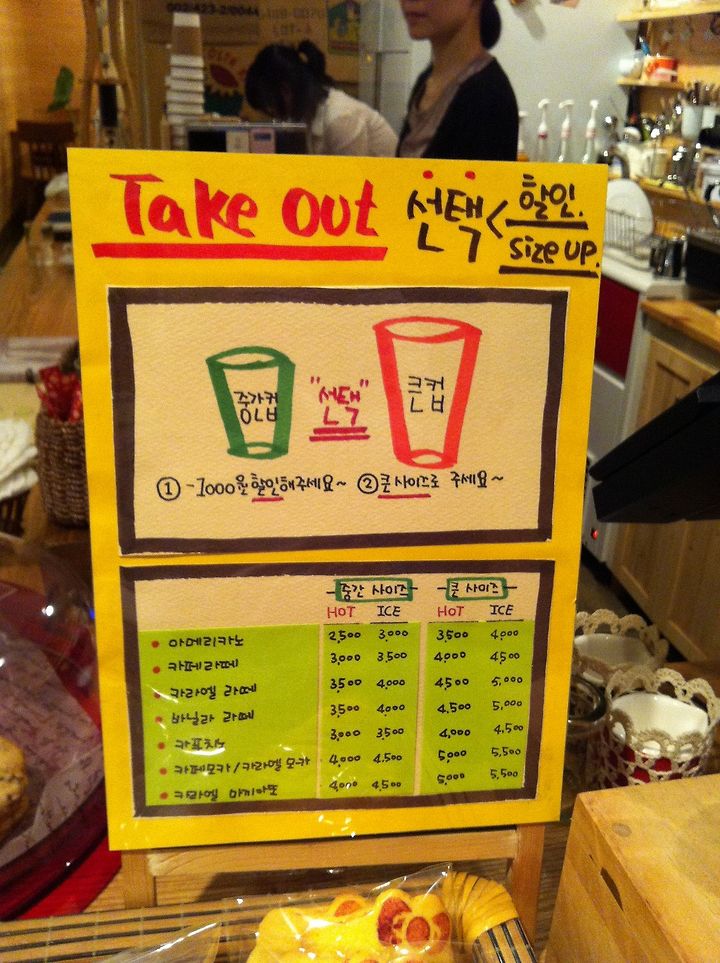 Take Out 선택 < 할인.
size up.
중간컵 "선택" 큰컵
① -1000원 할인해주세요~ ② 큰 사이즈로 주세요~
중간 사이즈 큰 사이즈
HOT ICE HOT ICE
• 아메리카노 2,500 3,000 3,500 4,000
• 카페라떼 3,000 3,500 4,000 4,500
• 카라멜 라떼 3,500 4,000 4,500 5,000
• 바닐라 라떼 3,500 4,000 4,500 5,000
• 카푸치노 3,000 3,500 4,000 4,500
• 카페모카/카라멜 모카 4,000 4,500 5,000 5,500
• 카라멜 마끼아또 4,000 4,500 5,000 5,500